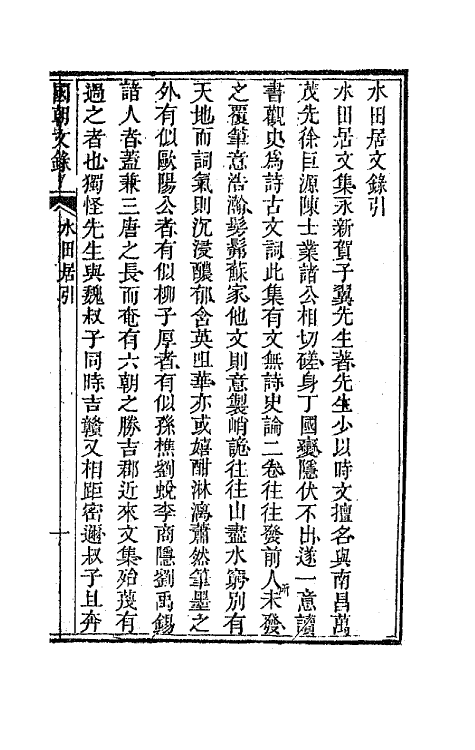 水田居文錄引
水田居文集永新賀子翼先生著先生少以時文擅名與南昌萬
茂先徐巨源陳士業諸公相切磋身丁國變隱伏不出遂一意讀
書觀史為詩古文詞此集有文無詩史論二卷往往發前人所未發
之覆筆意浩瀚髣髴蘇家他文則意製峭詭往往山盡水窮別有
天地而詞氣則沉浸醲郁含英咀華亦或嬉酣淋漓蕭然筆墨之
外有似歐陽公者有似柳子厚者有似孫樵劉蛻李商隱劉禹錫
諸人者蓋兼三唐之長而奄有六朝之勝吉郡近來文集殆蔑有
過之者也獨怪先生與魏叔子同時吉贛又相距密邇叔子且奔
國朝文錄 水田居引 一